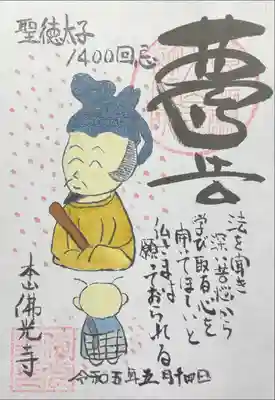 聖徳太子
1400回忌
法を聞き
深い苦悩から
学び取る心を
開いてほしいと
仏さまは
願っておられる
本山佛光寺
令和五年五月十四日